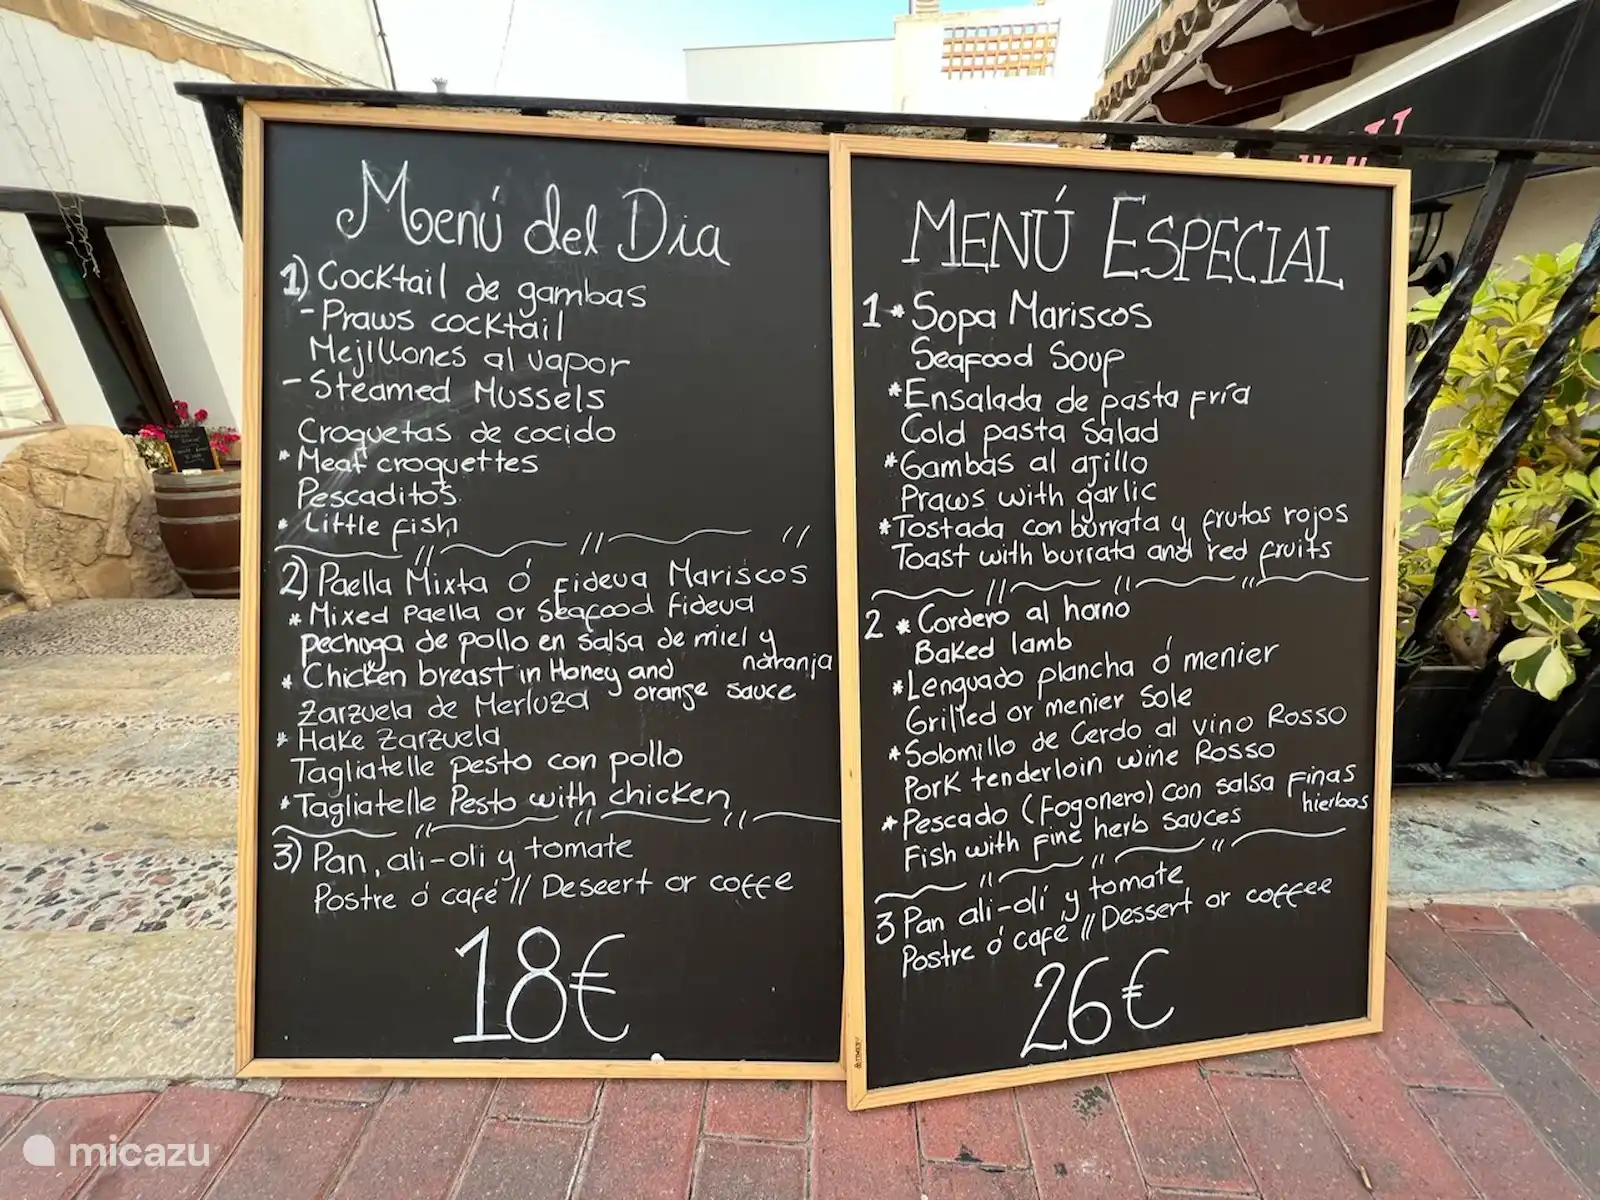 Menú del Dia
1) Cocktail de gambas
- Praws cocktail
Mejillones al vapor
- Steamed Mussels
Croquetas de cocido
* Meat croquettes
Pescaditos
* Little fish
2) Paella Mixta ó Fideua Mariscos
* Mixed Paella or Seafood Fideua
pechuga de pollo en salsa de miel y
naranja
* Chicken breast in Honey and
orange sauce
Zarzuela de Merluza
* Hake Zarzuela
Tagliatelle pesto con pollo
* Tagliatelle Pesto with chicken
3) Pan, ali-oli y tomate
Postre ó café // Deseert or coffe
18€
MENÚ ESPECIAL
1 * Sopa Mariscos
Seafood Soup
* Ensalada de pasta fría
Cold pasta Salad
* Gambas al ajillo
Praws with garlic
* Tostada con burrata y frutos rojos
Toast with burrata and red fruits
2 * Cordero al horno
Baked lamb
* Lenguado plancha ó menier
Grilled or menier Sole
* Solomillo de Cerdo al vino Rosso
Pork tenderloin wine Rosso
* Pescado (Fogonero) con salsa Finas
hierbas
Fish with fine herb sauces
3 Pan ali-olí y tomate
Postre ó café // Dessert or coffee
26€
micazu